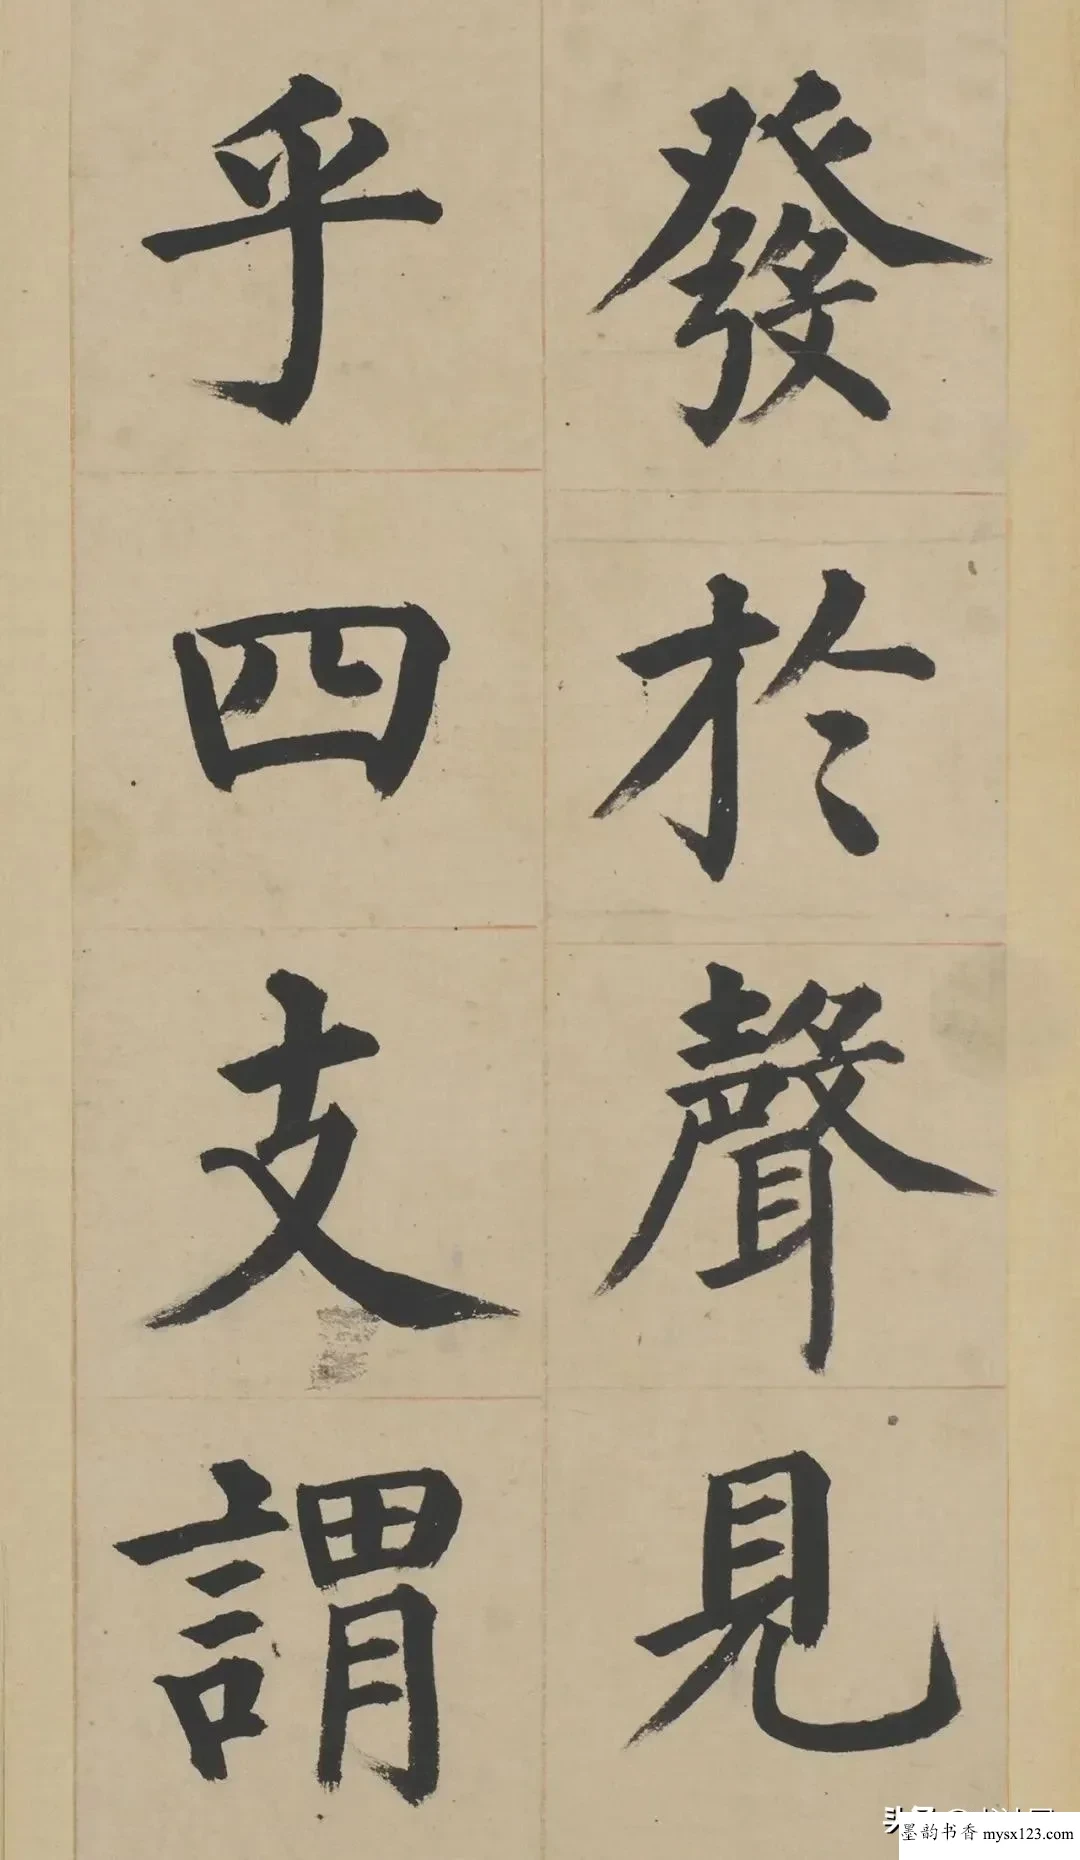 發於聲見
乎四支謂
墨韵书香 mysx123.com